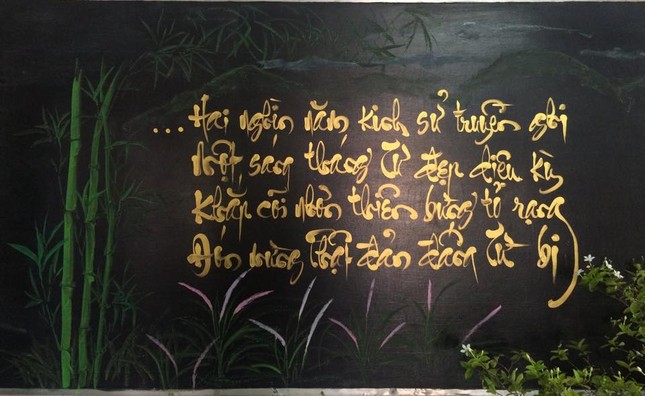 ... Hai nghìn năm, kinh sử truyền ghi
Một sáng tháng Tư đẹp diệu kỳ
Khắp cõi nhân thiên bừng tỏ rạng
Đón mừng Phật đản đấng Từ bi